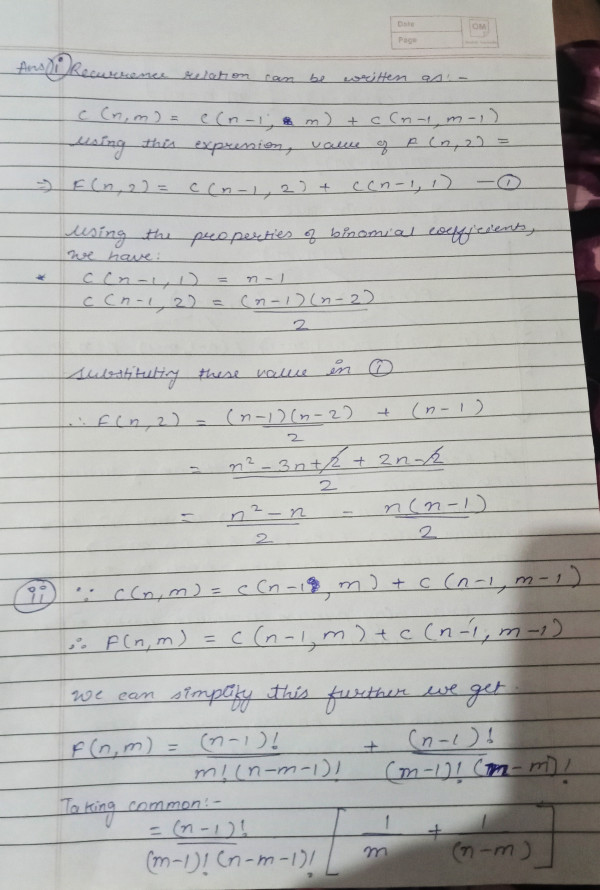 Date
Page
CM
Ans) i) Recurrence relation can be written as:-
C(n,m) = C(n-1, m) + C(n-1, m-1)
using this expression, value of F(n,2) =
⇒ F(n,2) = C(n-1, 2) + C(n-1, 1) — ①
using the properties of binomial coefficients,
we have:
* C(n-1, 1) = n-1
C(n-1, 2) = (n-1)(n-2)
2
substituting these value in ①
∴ F(n,2) = (n-1)(n-2) + (n-1)
2
= n² - 3n + 2 + 2n - 2
2
= n² - n = n(n-1)
2 2
ii ∵ C(n,m) = C(n-1, m) + C(n-1, m-1)
∴ F(n,m) = C(n-1, m) + C(n-1, m-1)
we can simplify this further we get.
F(n,m) = (n-1)! + (n-1)!
m!(n-m-1)! (m-1)!(n-m)!
Taking common:-
= (n-1)! [ 1 + 1 ]
(m-1)!(n-m-1)! m (n-m)